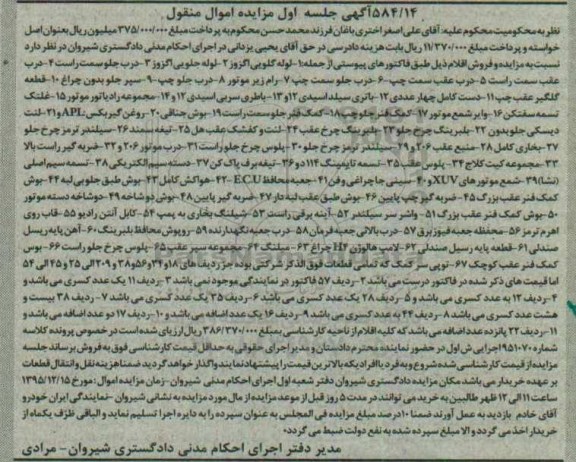 ۵۸۴/۱۴آگهی جلسه اول مزایده اموال منقول
نظر به محکومیت محکوم علیه: آقای علی اصغر اختری باغان فرزند محمد حسن محکوم به پرداخت مبلغ ۳۷۵/۰۰۰/۰۰۰ میلیون ریال بعنوان اصل
خواسته و پرداخت مبلغ ۱۱/۳۷۰/۰۰۰ ریال بابت هزینه دادرسی در حق آقای یحیی یزدانی در اجرای احکام مدنی دادگستری شیروان در نظر دارد
نسبت به مزایده و فروش اقلام ذیل طبق فاکتورهای پیوستی از جمله: ۱-لوله گلویی اگزوز ۲-لوله جلویی اگزوز ۳-درب جلو سمت راست ۴-درب
عقب سمت راست ۵-درب عقب سمت چپ ۶-درب جلو سمت چپ ۷-رام زیر موتور ۸-درب جلو چپ ۹-سپر جلو بدون چراغ ۱۰-قطعه
گلگیر عقب چپ ۱۱-دست کامل چهار عددی ۱۲-باتری سیلد اسیدی ۱۲و۱۳-باطری سربی اسیدی ۱۲و۱۴-مجموعه رادیاتور موتور ۱۵-غلتک
تسمه سفتکن ۱۶-وایر شمع موتور ۱۷-کمک فنر جلو چپ ۱۸-کمک فنر جلو سمت راست ۱۹-بوش جناقی ۲۰-روغن گیربکس APL ۲۱-لنت
دیسکی جلو بدون ۲۲-بلبرینگ چرخ جلو ۲۳-بلبرینگ چرخ عقب ۲۴-لنت و کفشک عقب هل ۲۵-تیغه سمند ۲۶-سیلندر ترمز چرخ جلو
۲۷-بخاری کامل ۲۸-منبع عقب ۲۰۶ و ۲۹-سیلندر ترمز چرخ جلو ۳۰-پلوس چرخ جلو راست ۳۱-درب موتور ۲۰۶ و ۳۲-ضربه گیر راست بالا
۳۳-مجموعه کیت کلاچ ۳۴-پلوس عقب ۳۵-تسمه تایمینگ ۱۱۴ دو ۳۶-تیغه برف پاک کن ۳۷-دسته سیم الکتریکی ۳۸-تسمه سیم اصلی
(نشا) ۳۹-شمع موتورهای XUV و ۴۰-سینی جا چراغی و فن ۴۱-جعبه محافظ ECU ۴۲-هواکش کامل ۴۳-بوش طبق جلویی لبه ۴۴-بوش
کمک فنر عقب بزرگ ۴۵-ضربه گیر چپ پایین ۴۶-بوش طبق عقب لبه دار ۴۷-ضربه گیر پایین ۴۸-بوش دو شاخه ۴۹-دوشاخه دسته موتور
۵۰-بوش کمک فنر عقب بزرگ ۵۱-واشر سر سیلندر ۵۲-آینه برقی راست ۵۳-شیلنگ بخاری به پمپ ۵۴-کابل آنتن رادیو ۵۵-قاب روی
اهرم ترمز ۵۶-محفظه جعبه فیوز برق ۵۷-درب بالائی جعبه فرمان ۵۸-درب جعبه نگهدارنده ۵۹-روپوش محافظ بلبرینگ ۶۰-آهن پایه ریسل
صندلی ۶۱-قطعه پایه رسیل صندلی ۶۲-لامپ هالوژن H4 چراغ ۶۳-میلنگ ۶۴-مجموعه سپر عقب ۶۵-پلوس چرخ جلو راست ۶۶-بوس
کمک فنر عقب کوچک ۶۷-توپی سر کمک که تمامی قطعات فوق الذکر شرکتی بوده جز ردیف های ۱۸و۲۴و۵۶و۳۸و ۲۰۹ الی ۲۵ و ۴۵ الی ۵۴
اما قیمت های ذکر شده در فاکتور درست می باشد ۲-ردیف ۵۷ فاکتور در نمایندگی موجود نمی باشد ۳-ردیف ۱۱ یک عدد کسری می باشد و
۴-ردیف ۱۲ به عدد کسری می باشد و ۵-ردیف ۲۸ یک عدد کسری می باشد ۶-ردیف ۳۵ یک عدد کسری می باشد ۷-ردیف ۳۸ بیست و
هشت عدد کسری می باشد ۸-ردیف ۴۴ به عدد کسری می باشد ۹-ردیف ۱۶ یک عدد اضافه می باشد و ۱۰-ردیف ۱۷ دو عدد اضافه می باشد و
۱۱-ردیف ۲۲ پانزده عدد اضافه می باشد که کلیه اقلام از ناحیه کارشناسی بمبلغ ۳۸۶/۳۷۰/۰۰۰ ریال ارزیابی شده است در خصوص پرونده کلاسه
شماره ۹۵۱۰۷۰ اجرایی ش اول در حضور نماینده محترم دادستان و مدیر اجرای حقوقی به حداقل قیمت کارشناسی فوق به فروش برساند جلسه
مزایده از قیمت کارشناسی شده شروع و به فرد یا افرادیکه بالاترین قیمت را پیشنهاد نمایند واگذار خواهد گردید ضمنا هزینه نقل و انتقال قطعات
بر عهده خریدار می باشد مکان مزایده دادگستری شیروان دفتر شعبه اول اجرای احکام مدنی شیروان-زمان مزایده اموال: مورخ ۱۳۹۵/۱۲/۱۵
ساعت ۱۱ الی ۱۲ ظهر طالبین به خرید می توانند در مدت ۵ روز قبل از موعد مزایده از مال مورد مزایده به نشانی شیروان-نمایندگی ایران خودرو
آقای خادم بازدید به عمل آورند ضمنا ۱۰ درصد مبلغ مزایده فی المجلس به عنوان سپرده را به دایره اجرا تسلیم نماید و الباقی ظرف یکماه از
خریدار اخذ می گردد و الا مبلغ سپرده شده به نفع دولت ضبط می گردد*
مدیر دفتر اجرای احکام مدنی دادگستری شیروان- مرادی